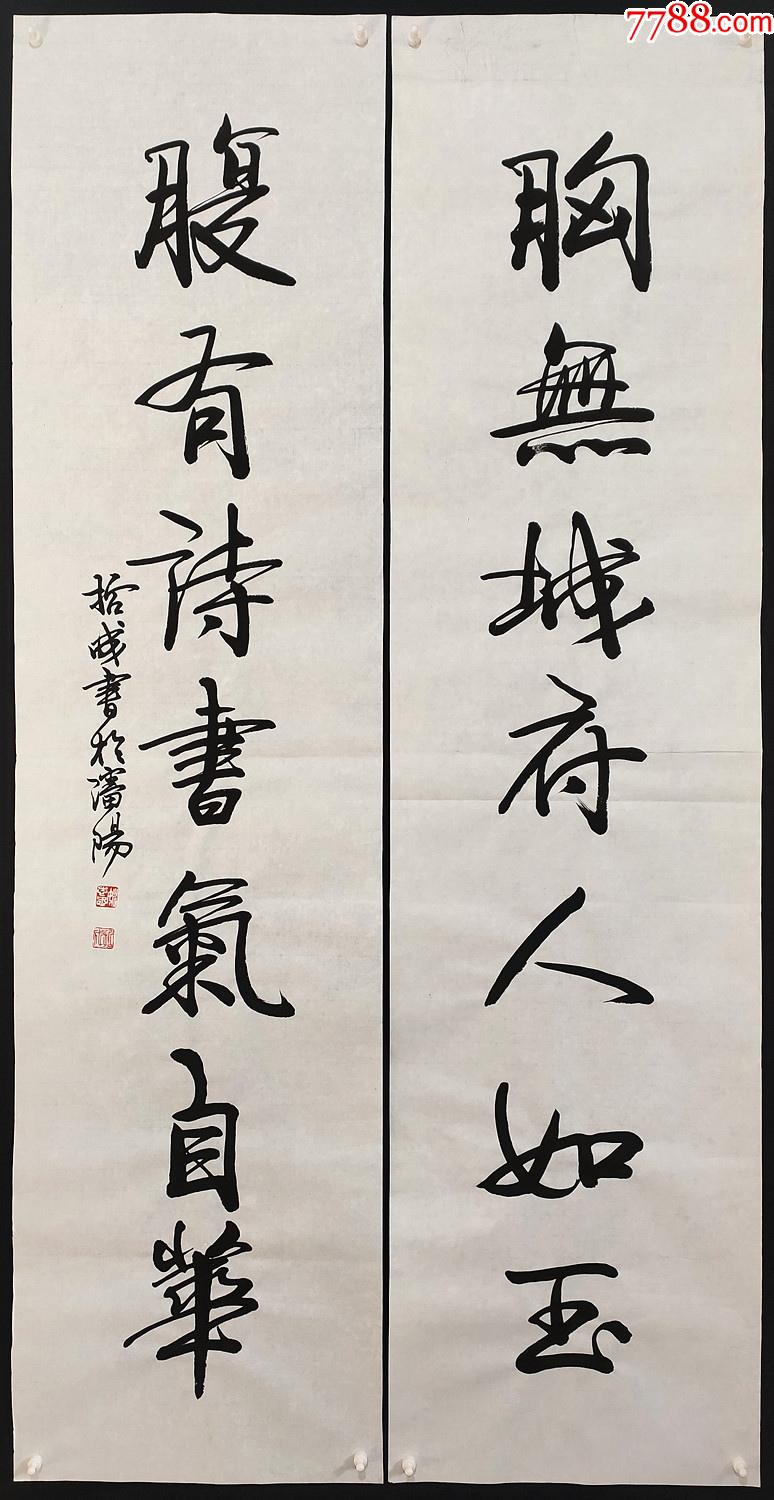 7788.com
胸無城府人如玉
腹有詩書氣自華
拾成書於瀋陽